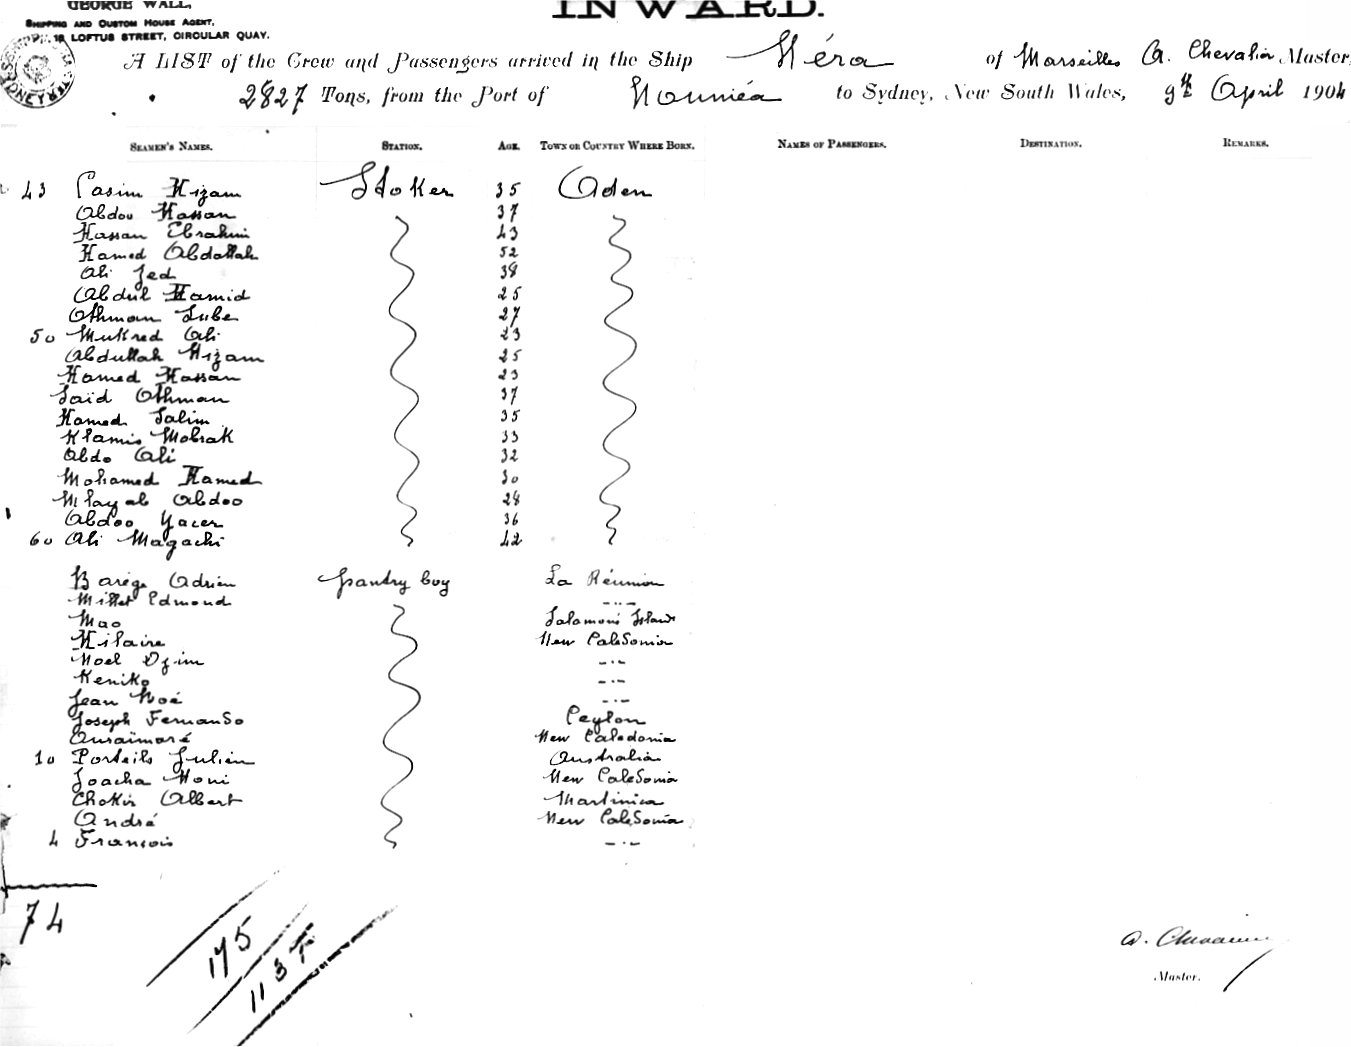 GEORGE WALL,
INWARD.
SHIPPING AND CUSTOM HOUSE AGENT,
18 LOFTUS STREET, CIRCULAR QUAY.
A LIST of the Crew and Passengers arrived in the Ship Néra of Marseilles A. Chevalier Master,
2827 Tons, from the Port of Nouméa to Sydney, New South Wales, 9th April 1904
SEAMEN'S NAMES. STATION. AGE. TOWN OR COUNTRY WHERE BORN. NAMES OF PASSENGERS. DESTINATION. REMARKS.
43 Casim Hizam Stoker 35 Aden
Abdou Hassan 37
Hassan Ebrahim 43
Hamed Abdallah 52
Ali Zed 38
Abdul Hamid 25
Othman Sube 27
50 Mukred Ali 23
Abdullah Hizam 25
Hamed Hassan 23
Saïd Othman 37
Hamed Salim 35
Klamis Mobrak 33
Abdo Ali 32
Mohamed Hamed 30
Mlayab Abdoo 28
Abdoo Yacer 36
60 Ali Magachi 42
Barège Adrien pantry boy La Réunion
Millet Edmond -"-
Mao Salamons Islands
Hilaire New Caledonia
Noel Dzim -"-
Keniko -"-
Jean Noé -"-
Joseph Fernando Ceylon
Ouraïmoré New Caledonia
10 Porteils Julien Australia
Joacha Honi New Caledonia
Chokir Albert Martinica
André New Caledonia
4 François -"-
74
175
113 F
A. Chevalier
Master.